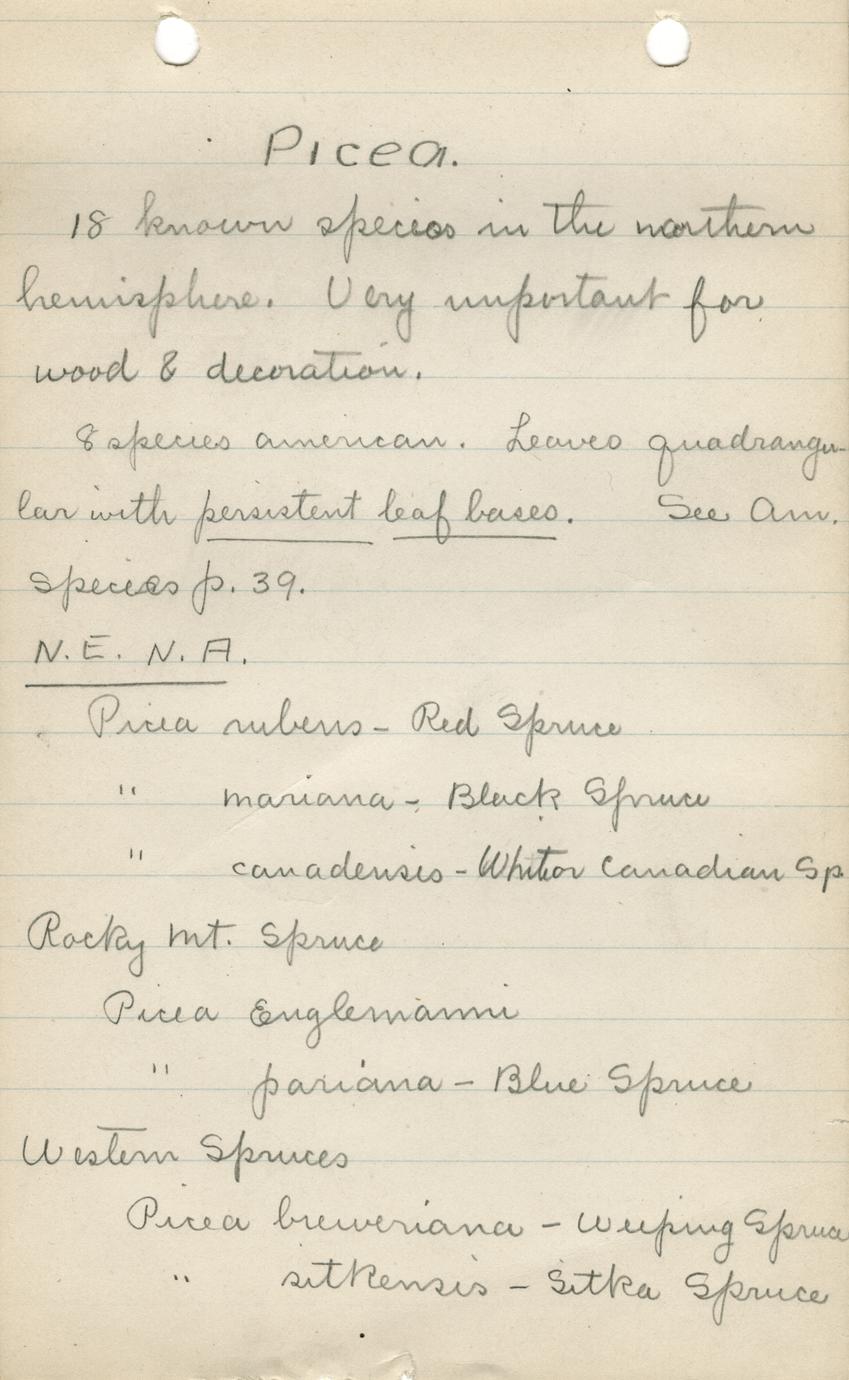 Picea.
18 known species in the northern
hemisphere. Very important for
wood & decoration.
8 species american. Leaves quadrangu-
lar with persistent leaf bases. See Am.
species p. 39.
N.E. N.A.
Picea rubens - Red Spruce
" mariana - Black Spruce
" canadensis - White or Canadian Sp
Rocky Mt. Spruce
Picea Englemanni
" pariana - Blue Spruce
Western Spruces
Picea breweriana - Weeping Spruce
" sitkensis - Sitka Spruce